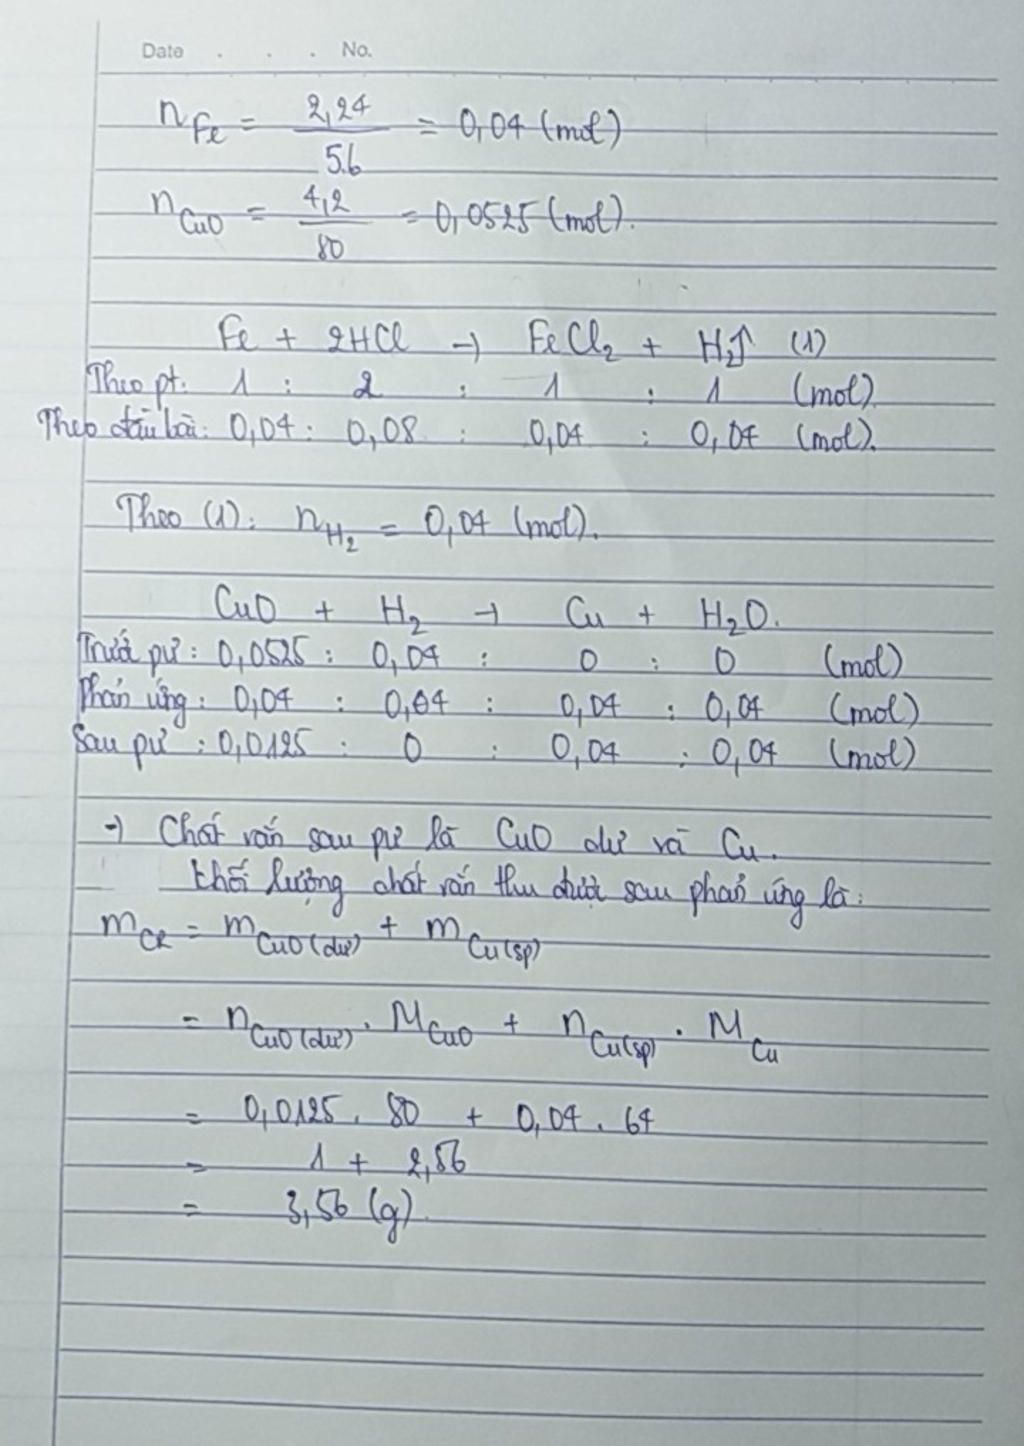 Date . . . No.
n Fe = 2,24 / 56 = 0,04 (mol)
n CuO = 4,2 / 80 = 0,0525 (mol).
Fe + 2HCl → FeCl₂ + H₂↑ (1)
Theo pt: 1 : 2 : 1 : 1 (mol)
Theo đầu bài: 0,04 : 0,08 : 0,04 : 0,04 (mol).
Theo (1): n H₂ = 0,04 (mol).
CuO + H₂ → Cu + H₂O.
Trước pứ : 0,0525 : 0,04 : 0 : 0 (mol)
Phản ứng : 0,04 : 0,04 : 0,04 : 0,04 (mol)
Sau pứ : 0,0125 : 0 : 0,04 : 0,04 (mol)
→ Chất rắn sau pứ là CuO dư và Cu.
Khối lượng chất rắn thu được sau phản ứng là:
m CR = m CuO (dư) + m Cu (sp)
= n CuO (dư) . M CuO + n Cu (sp) . M Cu
= 0,0125 . 80 + 0,04 . 64
= 1 + 2,56
= 3,56 (g).